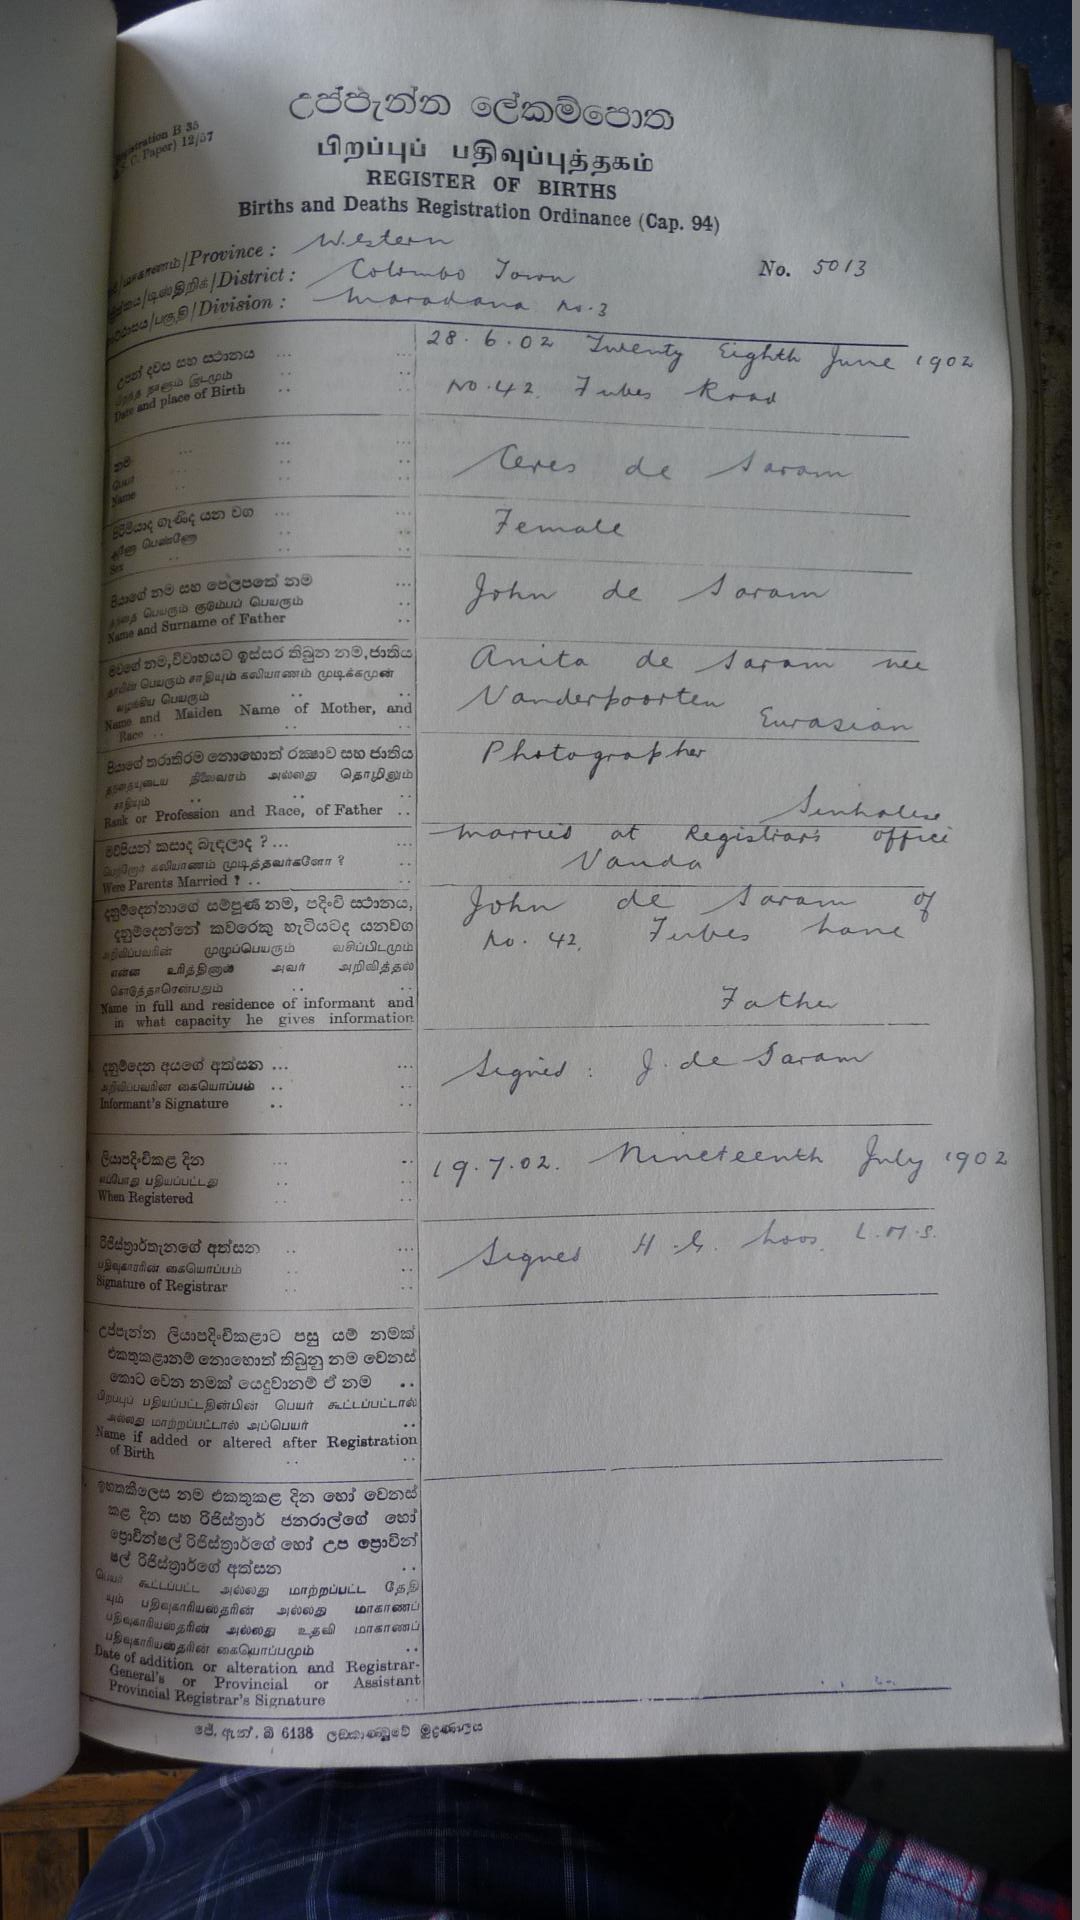 උප්පැන්න ලේකම්පොත
பிறப்புப் பதிவுப்புத்தகம்
REGISTER OF BIRTHS
Births and Deaths Registration Ordinance (Cap. 94)
Registration B 35
C. Paper) 12/57
/Province : Western
No. 5013
/District : Colombo Town
/Division : Maradana No. 3
උපන් දවස සහ ස්ථානය
பிறந்த நாளும் இடமும்
Date and place of Birth
28. 6. 02 Twenty Eighth June 1902
No. 42. Forbes Road
නම
பெயர்
Name
Ceres de Saram
පිරිමියාද ගැණිද යන වග
ஆணோ பெண்ணோ
Sex
Female
පියාගේ නම සහ පෙලපතේ නම
தந்தை பெயரும் குடும்பப் பெயரும்
Name and Surname of Father
John de Saram
මවගේ නම, විවාහයට ඉස්සර තිබුන නම, ජාතිය
தாயின் பெயரும் சாதியும் கலியாணம் முடிக்கமுன்
வழங்கிய பெயரும்
Name and Maiden Name of Mother, and
Race
Anita de Saram nee
Vanderpoorten
Eurasian
පියාගේ තරාතිරම නොහොත් රක්ෂාව සහ ජාතිය
தந்தையுடைய நிலைவரம் அல்லது தொழிலும்
சாதியும்
Rank or Profession and Race, of Father
Photographer
Sinhalese
මව්පියන් කසාද බැඳලාද ?
பெற்றோர் கலியாணம் முடித்தவர்களோ ?
Were Parents Married ?
Married at Registrar's office
දනුම්දෙන්නාගේ සම්පූර්ණ නම, පදිංචි ස්ථානය,
දනුම්දෙන්නේ කවරෙකු හැටියටද යනවග
அறிவிப்பவரின் முழுப்பெயரும் வசிப்பிடமும்
என்ன உரித்தினால் அவர் அறிவித்தல்
கொடுத்தாரென்பதும்
Name in full and residence of informant and
in what capacity he gives information
John de Saram of
No. 42, Forbes Lane
Father
දනුම්දෙන අයගේ අත්සන
அறிவிப்பவரின் கையொப்பம்
Informant's Signature
Signed : J. de Saram
ලියාපදිංචිකළ දින
எப்போது பதியப்பட்டது
When Registered
19. 7. 02. Nineteenth July 1902
රිජිස්ත්‍රාර්තැනගේ අත්සන
பதிவுகாரரின் கையொப்பம்
Signature of Registrar
Signed H. G. Loos. L. M. S.
උප්පැන්න ලියාපදිංචිකළාට පසු යම් නමක්
එකතුකළානම් නොහොත් තිබුනු නම වෙනස්
කොට වෙන නමක් යෙදුවානම් ඒ නම
பிறப்புப் பதியப்பட்டதின்பின் பெயர் கூட்டப்பட்டால்
அல்லது மாற்றப்பட்டால் அப்பெயர்
Name if added or altered after Registration
of Birth
ඉහතකීලෙස නම එකතුකළ දින හෝ වෙනස්
කළ දින සහ රිජිස්ත්‍රාර් ජනරාල්ගේ හෝ
ප්‍රොවින්ෂල් රිජිස්ත්‍රාර්ගේ හෝ උප ප්‍රොවින්
ෂල් රිජිස්ත්‍රාර්ගේ අත්සන
பெயர் கூட்டப்பட்ட அல்லது மாற்றப்பட்ட தேதி
யும் பதிவுகாரியஸ்தரின் அல்லது மாகாணப்
பதிவுகாரியஸ்தரின் அல்லது உதவி மாகாணப்
பதிவுகாரியஸ்தரின் கையொப்பமும்
Date of addition or alteration and Registrar-
General's or Provincial or Assistant
Provincial Registrar's Signature
ජේ. ඇන්. බී 6138 ලඞ්කාණ්ඩුවේ මුද්‍රණාලය